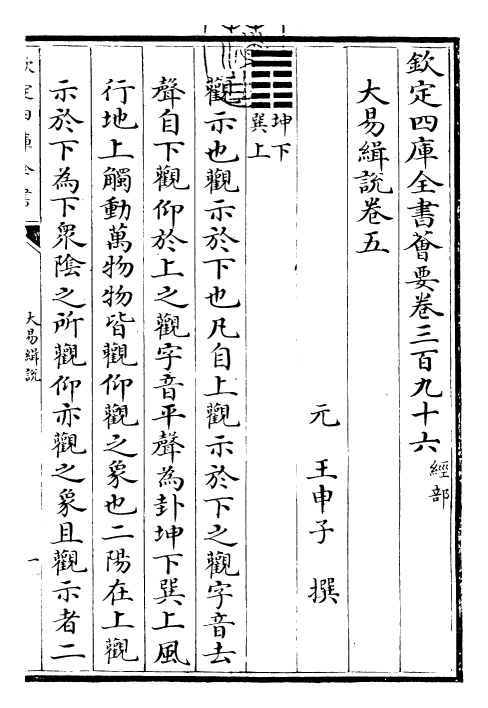 欽定四庫全書薈要卷三百九十六經部
大易緝說卷五
元　王申子　撰
坤下
巽上
觀示也觀示於下也凡自上觀示於下之觀字音去
聲自下觀仰於上之觀字音平聲為卦坤下巽上風
行地上觸動萬物物皆觀仰觀之象也二陽在上觀
示於下為下衆陰之所觀仰亦觀之象且觀示者二
大易緝說
一